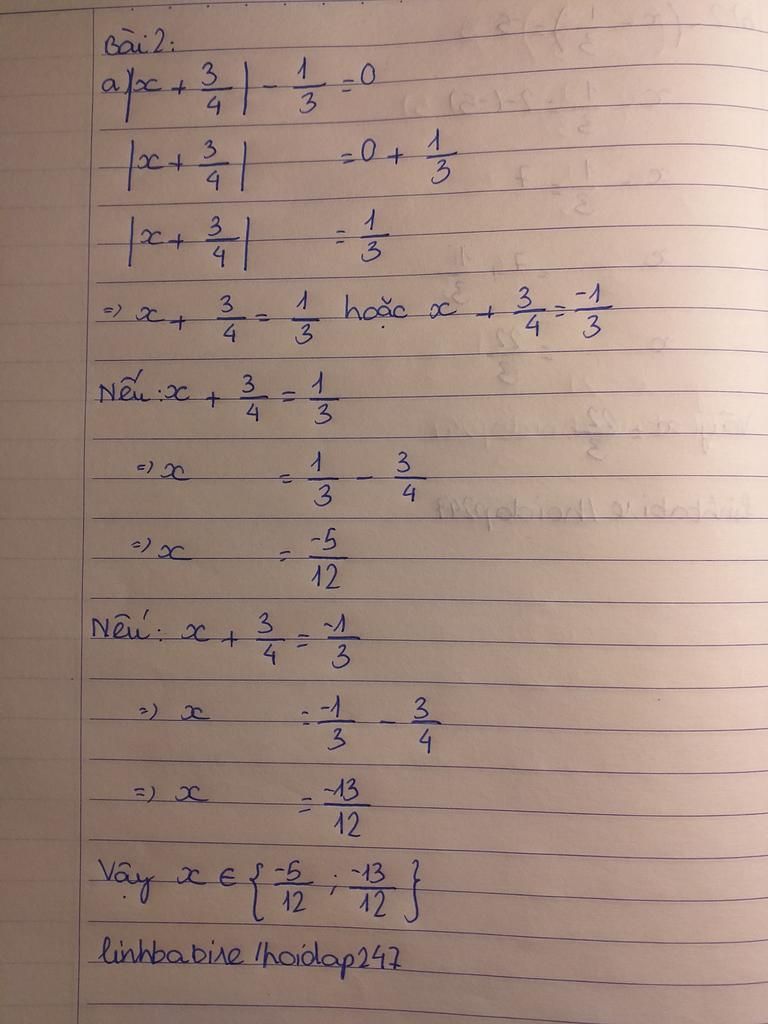 Bài 2:
a |x + 3/4| - 1/3 = 0
|x + 3/4| = 0 + 1/3
|x + 3/4| = 1/3
=> x + 3/4 = 1/3 hoặc x + 3/4 = -1/3
Nếu: x + 3/4 = 1/3
=> x = 1/3 - 3/4
=> x = -5/12
Nếu: x + 3/4 = -1/3
=> x = -1/3 - 3/4
=> x = -13/12
Vậy x ∈ {-5/12 ; -13/12}
linhbabie /hoidap247